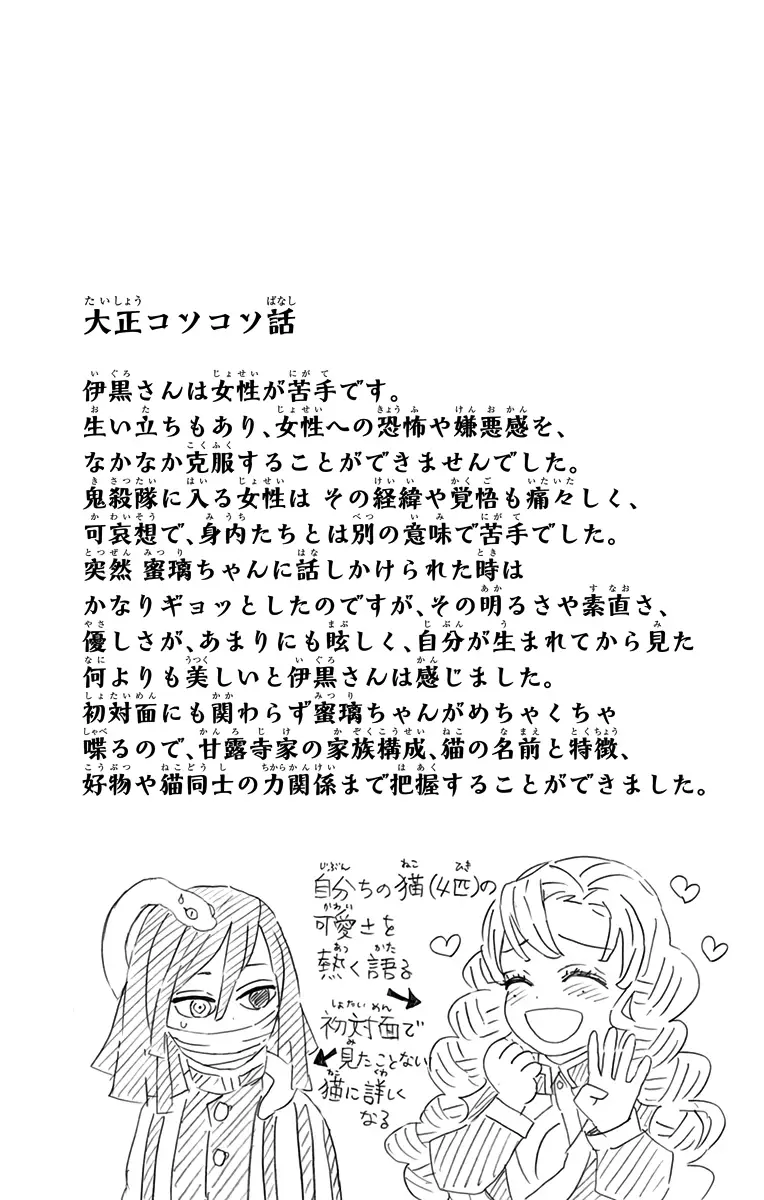 大正コソコソ話
伊黒さんは女性が苦手です。
生い立ちもあり、女性への恐怖や嫌悪感を、
なかなか克服することができませんでした。
鬼殺隊に入る女性は その経緯や覚悟も痛々しく、
可哀想で、身内たちとは別の意味で苦手でした。
突然 蜜璃ちゃんに話しかけられた時は
かなりギョッとしたのですが、その明るさや素直さ、
優しさが、あまりにも眩しく、自分が生まれてから見た
何よりも美しいと伊黒さんは感じました。
初対面にも関わらず蜜璃ちゃんがめちゃくちゃ
喋るので、甘露寺家の家族構成、猫の名前と特徴、
好物や猫同士の力関係まで把握することができました。
自分ちの猫(4匹)の
可愛さを
熱く語る
初対面で
見たことない
猫に詳しく
なる